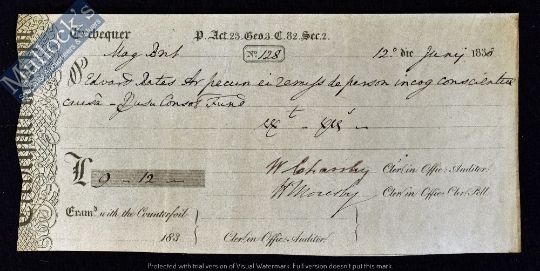 Mullock's
Exchequer P. Act 23. Geo. 3. C. 82. Sec. 2.
Mag Brit No 128 12o die Junij 1833
Edward Bates Ar pecun ei remiss de person incog conscientiæ
causâ - Dusu Consol Fund
£ 9 - 12 -
Cler. in Offic: Auditor.
Cler. in Offic: Cler. Pell.
Examd. with the Counterfoil
183 Cler. in Offic: Auditor.
Protected with trial version of Visual Watermark. Full version doesn't put this mark.